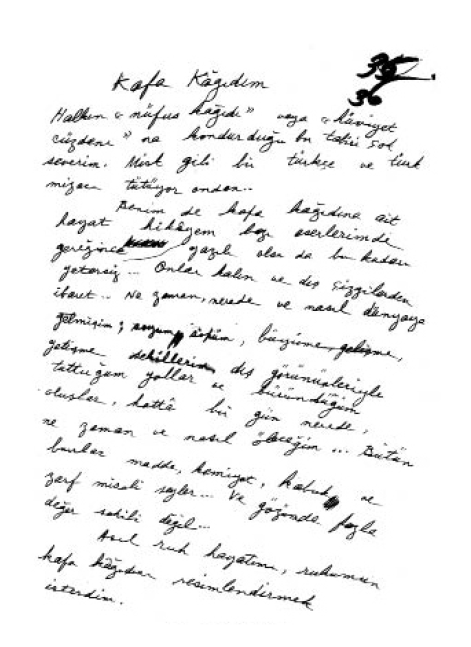 36
Kafa Kâğıdım
36
Halkın "nüfus kâğıdı" veya "hüviyet
cüzdanı" na kondurduğu bu tabiri çok
severim. Misk gibi bir türkçe ve türk
mizacı tütüyor ondan..
Benim de kafa kâğıdına ait
hayat hikâyem bazı eserlerimde
gereğince yazılı olsa da bu kadarı
yetersiz... Onlar kalın ve dış çizgilerden
ibaret.. Ne zaman, nerede ve nasıl dünyaya
gelmişim; soyum sopum, büyüme, gelişme,
yetişme şekillerim, dış görünüşleriyle
tuttuğum yollar ve büründüğüm
oluşlar, hattâ bir gün nerede,
ne zaman ve nasıl öleceğim... Bütün
bunlar madde, kemiyet, kabuk ve
zarf misali şeyler... Ve gözümde fazla
değer sahibi değil...
Asıl ruh hayatımı, ruhumun
kafa kâğıdını resimlendirmek
isterdim.